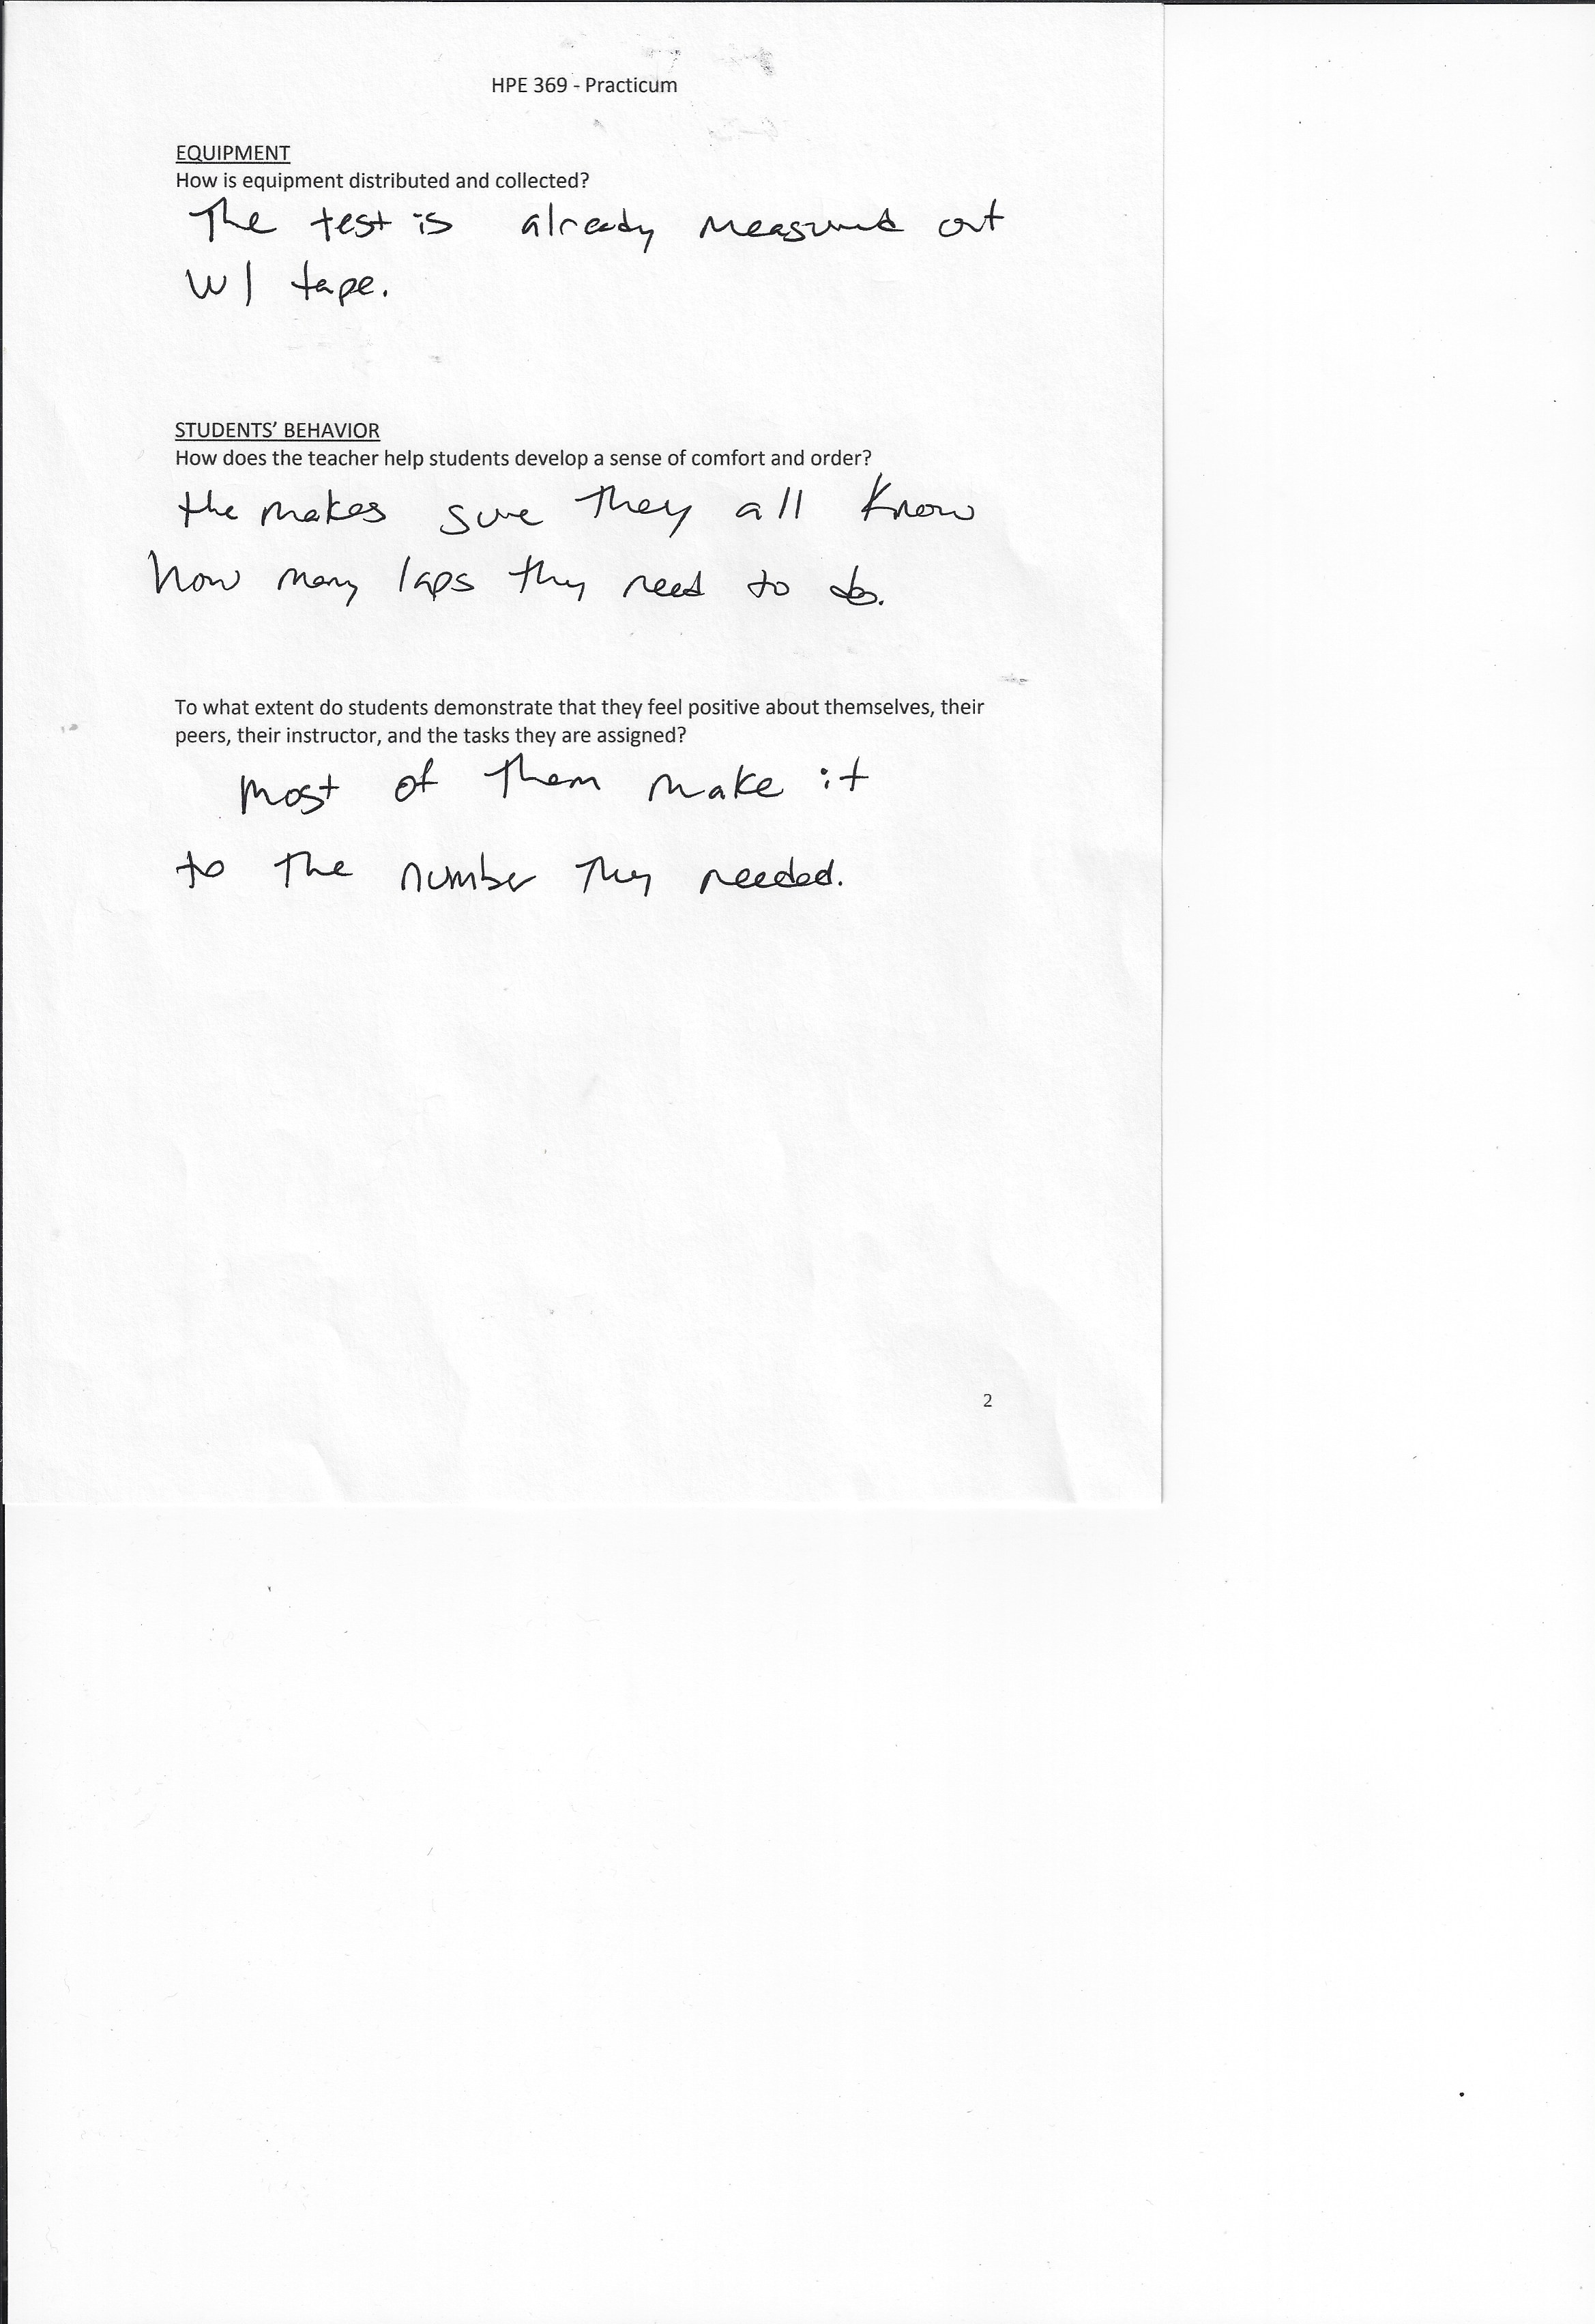 HPE 369 - Practicum
EQUIPMENT
How is equipment distributed and collected?
The test is already measured out
w/ tape.
STUDENTS' BEHAVIOR
How does the teacher help students develop a sense of comfort and order?
the makes sure they all know
how many laps they need to do.
To what extent do students demonstrate that they feel positive about themselves, their
peers, their instructor, and the tasks they are assigned?
most of them make it
to the number they needed.
2